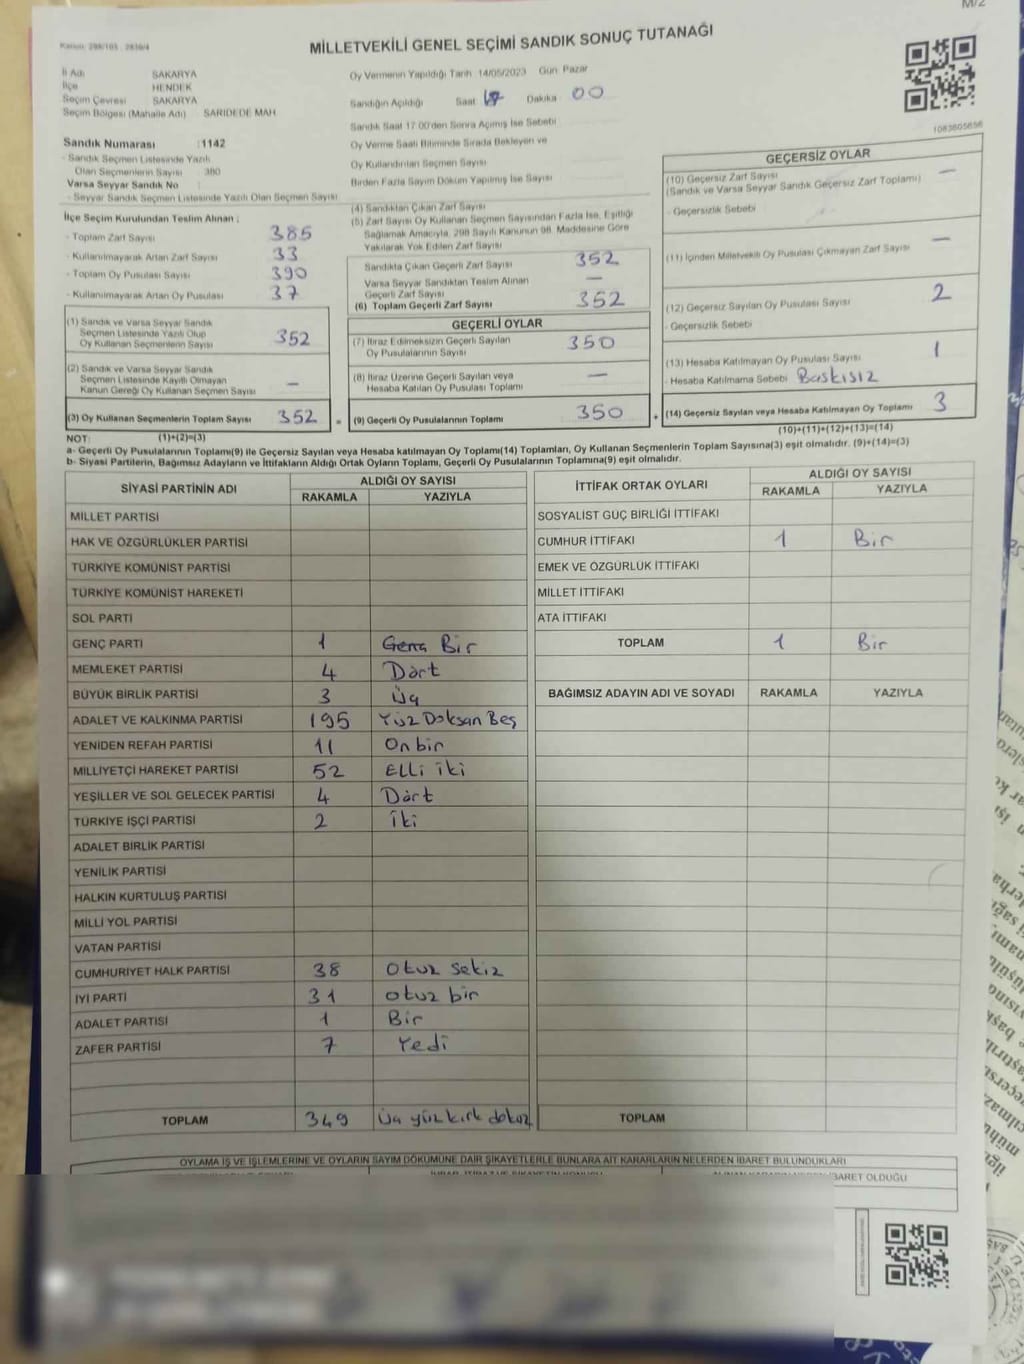 M/2
Kanun: 298/105 , 2839/4
MİLLETVEKİLİ GENEL SEÇİMİ SANDIK SONUÇ TUTANAĞI
İl Adı SAKARYA
İlçe HENDEK
Seçim Çevresi SAKARYA
Seçim Bölgesi (Mahalle Adı) SARIDEDE MAH.
Oy Vermenin Yapıldığı Tarih 14/05/2023 Gün Pazar
Sandığın Açıldığı Saat 17 Dakika 00
Sandık Saat 17:00'den Sonra Açılmış İse Sebebi
Oy Verme Saati Bitiminde Sırada Bekleyen ve
Oy Kullandırılan Seçmen Sayısı
Birden Fazla Sayım Döküm Yapılmış İse Sayısı
1083805656
Sandık Numarası :1142
- Sandık Seçmen Listesinde Yazılı
Olan Seçmenlerin Sayısı : 380
Varsa Seyyar Sandık No
- Seyyar Sandık Seçmen Listesinde Yazılı Olan Seçmen Sayısı
İlçe Seçim Kurulundan Teslim Alınan ;
- Toplam Zarf Sayısı 385
- Kullanılmayarak Artan Zarf Sayısı 33
- Toplam Oy Pusulası Sayısı 390
- Kullanılmayarak Artan Oy Pusulası 37
(1) Sandık ve Varsa Seyyar Sandık
Seçmen Listesinde Yazılı Olup
Oy Kullanan Seçmenlerin Sayısı 352
(2) Sandık ve Varsa Seyyar Sandık
Seçmen Listesinde Kayıtlı Olmayan
Kanun Gereği Oy Kullanan Seçmen Sayısı —
(3) Oy Kullanan Seçmenlerin Toplam Sayısı 352 =
(1)+(2)=(3)
(4) Sandıktan Çıkan Zarf Sayısı
(5) Zarf Sayısı Oy Kullanan Seçmen Sayısından Fazla İse, Eşitliği
Sağlamak Amacıyla, 298 Sayılı Kanunun 98. Maddesine Göre
Yakılarak Yok Edilen Zarf Sayısı
Sandıkta Çıkan Geçerli Zarf Sayısı 352
Varsa Seyyar Sandıktan Teslim Alınan
Geçerli Zarf Sayısı —
(6) Toplam Geçerli Zarf Sayısı 352
GEÇERLİ OYLAR
(7) İtiraz Edilmeksizin Geçerli Sayılan
Oy Pusulalarının Sayısı 350
(8) İtiraz Üzerine Geçerli Sayılan veya
Hesaba Katılan Oy Pusulası Toplamı —
(9) Geçerli Oy Pusulalarının Toplamı 350 +
GEÇERSİZ OYLAR
(10) Geçersiz Zarf Sayısı
(Sandık ve Varsa Seyyar Sandık Geçersiz Zarf Toplamı) —
- Geçersizlik Sebebi
(11) İçinden Milletvekili Oy Pusulası Çıkmayan Zarf Sayısı —
(12) Geçersiz Sayılan Oy Pusulası Sayısı 2
- Geçersizlik Sebebi
(13) Hesaba Katılmayan Oy Pusulası Sayısı 1
- Hesaba Katılmama Sebebi Baskısız
(14) Geçersiz Sayılan veya Hesaba Katılmayan Oy Toplamı 3
(10)+(11)+(12)+(13)=(14)
NOT:
a- Geçerli Oy Pusulalarının Toplamı(9) ile Geçersiz Sayılan veya Hesaba katılmayan Oy Toplamı(14) Toplamları, Oy Kullanan Seçmenlerin Toplam Sayısına(3) eşit olmalıdır. (9)+(14)=(3)
b- Siyasi Partilerin, Bağımsız Adayların ve İttifakların Aldığı Ortak Oyların Toplamı, Geçerli Oy Pusulalarının Toplamına(9) eşit olmalıdır.
SİYASİ PARTİNİN ADI ALDIĞI OY SAYISI
RAKAMLA YAZIYLA
MİLLET PARTİSİ
HAK VE ÖZGÜRLÜKLER PARTİSİ
TÜRKİYE KOMÜNİST PARTİSİ
TÜRKİYE KOMÜNİST HAREKETİ
SOL PARTİ
GENÇ PARTİ 1 Genç Bir
MEMLEKET PARTİSİ 4 Dört
BÜYÜK BİRLİK PARTİSİ 3 Üç
ADALET VE KALKINMA PARTİSİ 195 Yüz Doksan Beş
YENİDEN REFAH PARTİSİ 11 On bir
MİLLİYETÇİ HAREKET PARTİSİ 52 Elli iki
YEŞİLLER VE SOL GELECEK PARTİSİ 4 Dört
TÜRKİYE İŞÇİ PARTİSİ 2 İki
ADALET BİRLİK PARTİSİ
YENİLİK PARTİSİ
HALKIN KURTULUŞ PARTİSİ
MİLLİ YOL PARTİSİ
VATAN PARTİSİ
CUMHURİYET HALK PARTİSİ 38 Otuz sekiz
İYİ PARTİ 31 otuz bir
ADALET PARTİSİ 1 Bir
ZAFER PARTİSİ 7 Yedi
TOPLAM 349 Üç yüz kırk dokuz
İTTİFAK ORTAK OYLARI ALDIĞI OY SAYISI
RAKAMLA YAZIYLA
SOSYALİST GÜÇ BİRLİĞİ İTTİFAKI
CUMHUR İTTİFAKI 1 Bir
EMEK VE ÖZGÜRLÜK İTTİFAKI
MİLLET İTTİFAKI
ATA İTTİFAKI
TOPLAM 1 Bir
BAĞIMSIZ ADAYIN ADI VE SOYADI RAKAMLA YAZIYLA
TOPLAM
OYLAMA İŞ VE İŞLEMLERİNE VE OYLARIN SAYIM DÖKÜMÜNE DAİR ŞİKAYETLERLE BUNLARA AİT KARARLARIN NELERDEN İBARET BULUNDUKLARI
İBARET OLDUĞU